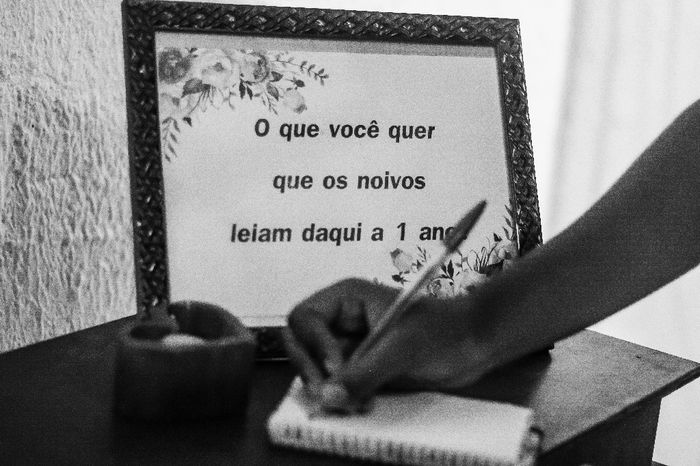 O que você quer
que os noivos
leiam daqui a 1 ano